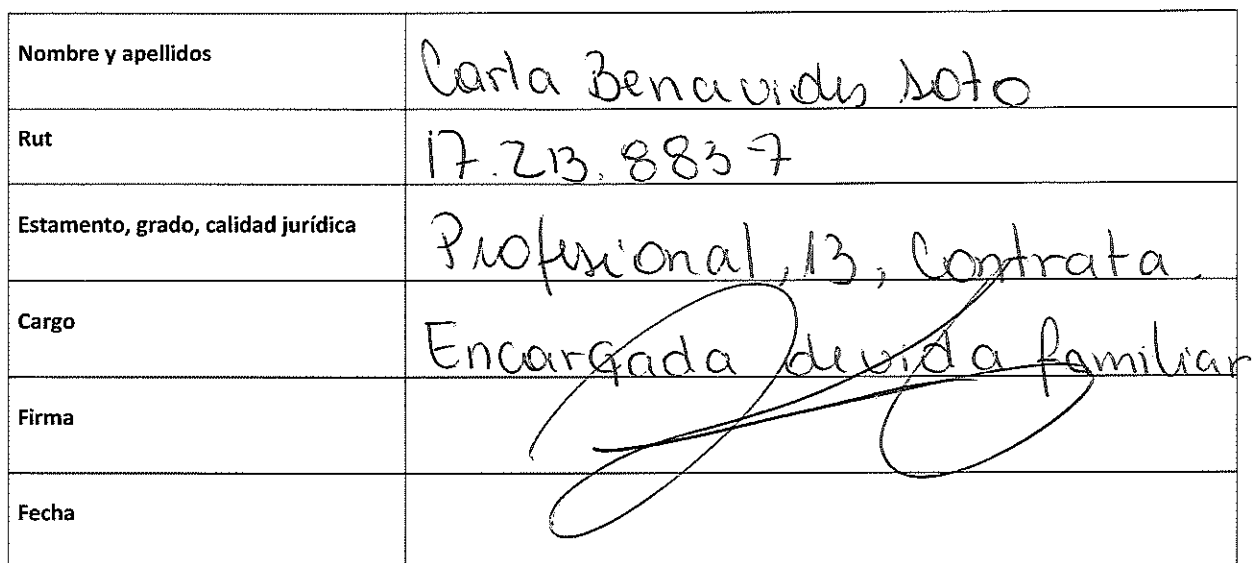 Nombre y apellidos
Carla Benavides Soto
Rut
17.213.883-7
Estamento, grado, calidad jurídica
Profesional, 13, Contrata.
Cargo
Encargada de vida familiar
Firma
Fecha